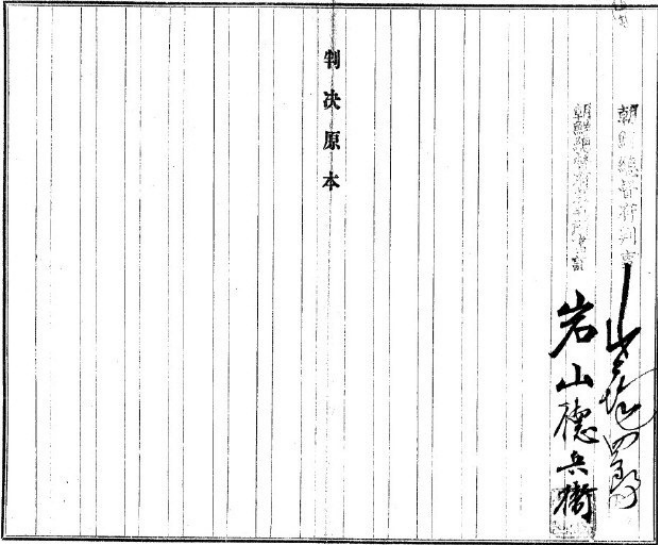 朝鮮總督府判事 四郎
朝鮮總督府裁判所書記 岩山德兵衛
判決原本